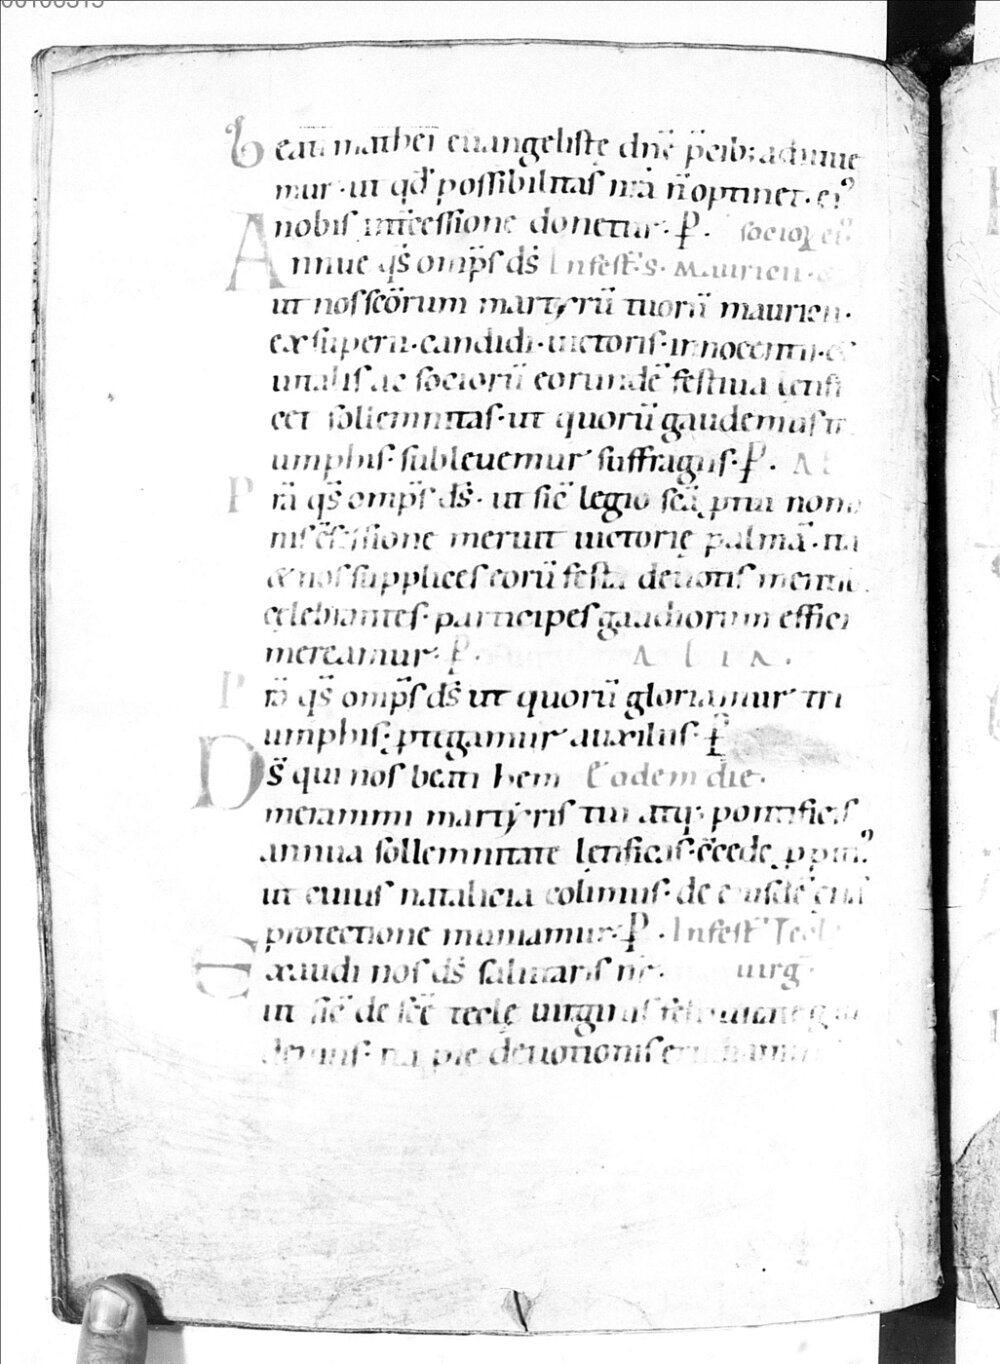 Beati mathei euangeliste dn̄e p̄cib; adiuue
mur · ut qd̕ possibilitas nr̄a n̄ optinet · ei'
nobis int̄cessione donetur · P · socioꝝ ei'
Annue qs̄ omp̄s ds̄ In fest̄ · s · Mauricii · &
ut nos sc̄orum martyrū tuorū mauricii ·
exsuperii · candidi · uictoris · innocentii · &
uitalis ac sociorū eorundē festiua letifi
cet sollemnitas · ut quorū gaudemus tri
umphis · subleuemur suffragiis · P · Al
Pr̄a qs̄ omp̄s ds̄ · ut sic̄ legio sc̄a ꝑ tui nomi
nis c̄fessione meruit uictorie palmā · ita
& nos supplices eorū festa deuotis mentib
celebrantes · participes gaudiorum effici
mereamur · P · ALIA ·
Pr̄a qs̄ omp̄s ds̄ ut quorū gloriamur tri
umphis; ꝓtegamur auxiliis · P
Ds̄ qui nos beati hem Eodem die ·
merammi martyris tui atq; pontificis
annua sollemnitate letificas · c̄cede ꝓpiti'
ut cuius natalicia colimus · de eiusdē etiā
protectione muniamur · P · In fest̄ Tecle
Exaudi nos ds̄ salutaris nr̄ · uirḡ ·
ut sic̄ de sc̄e tecle uirginis festiuitate gau
demus · ita pie deuotionis erudiamur